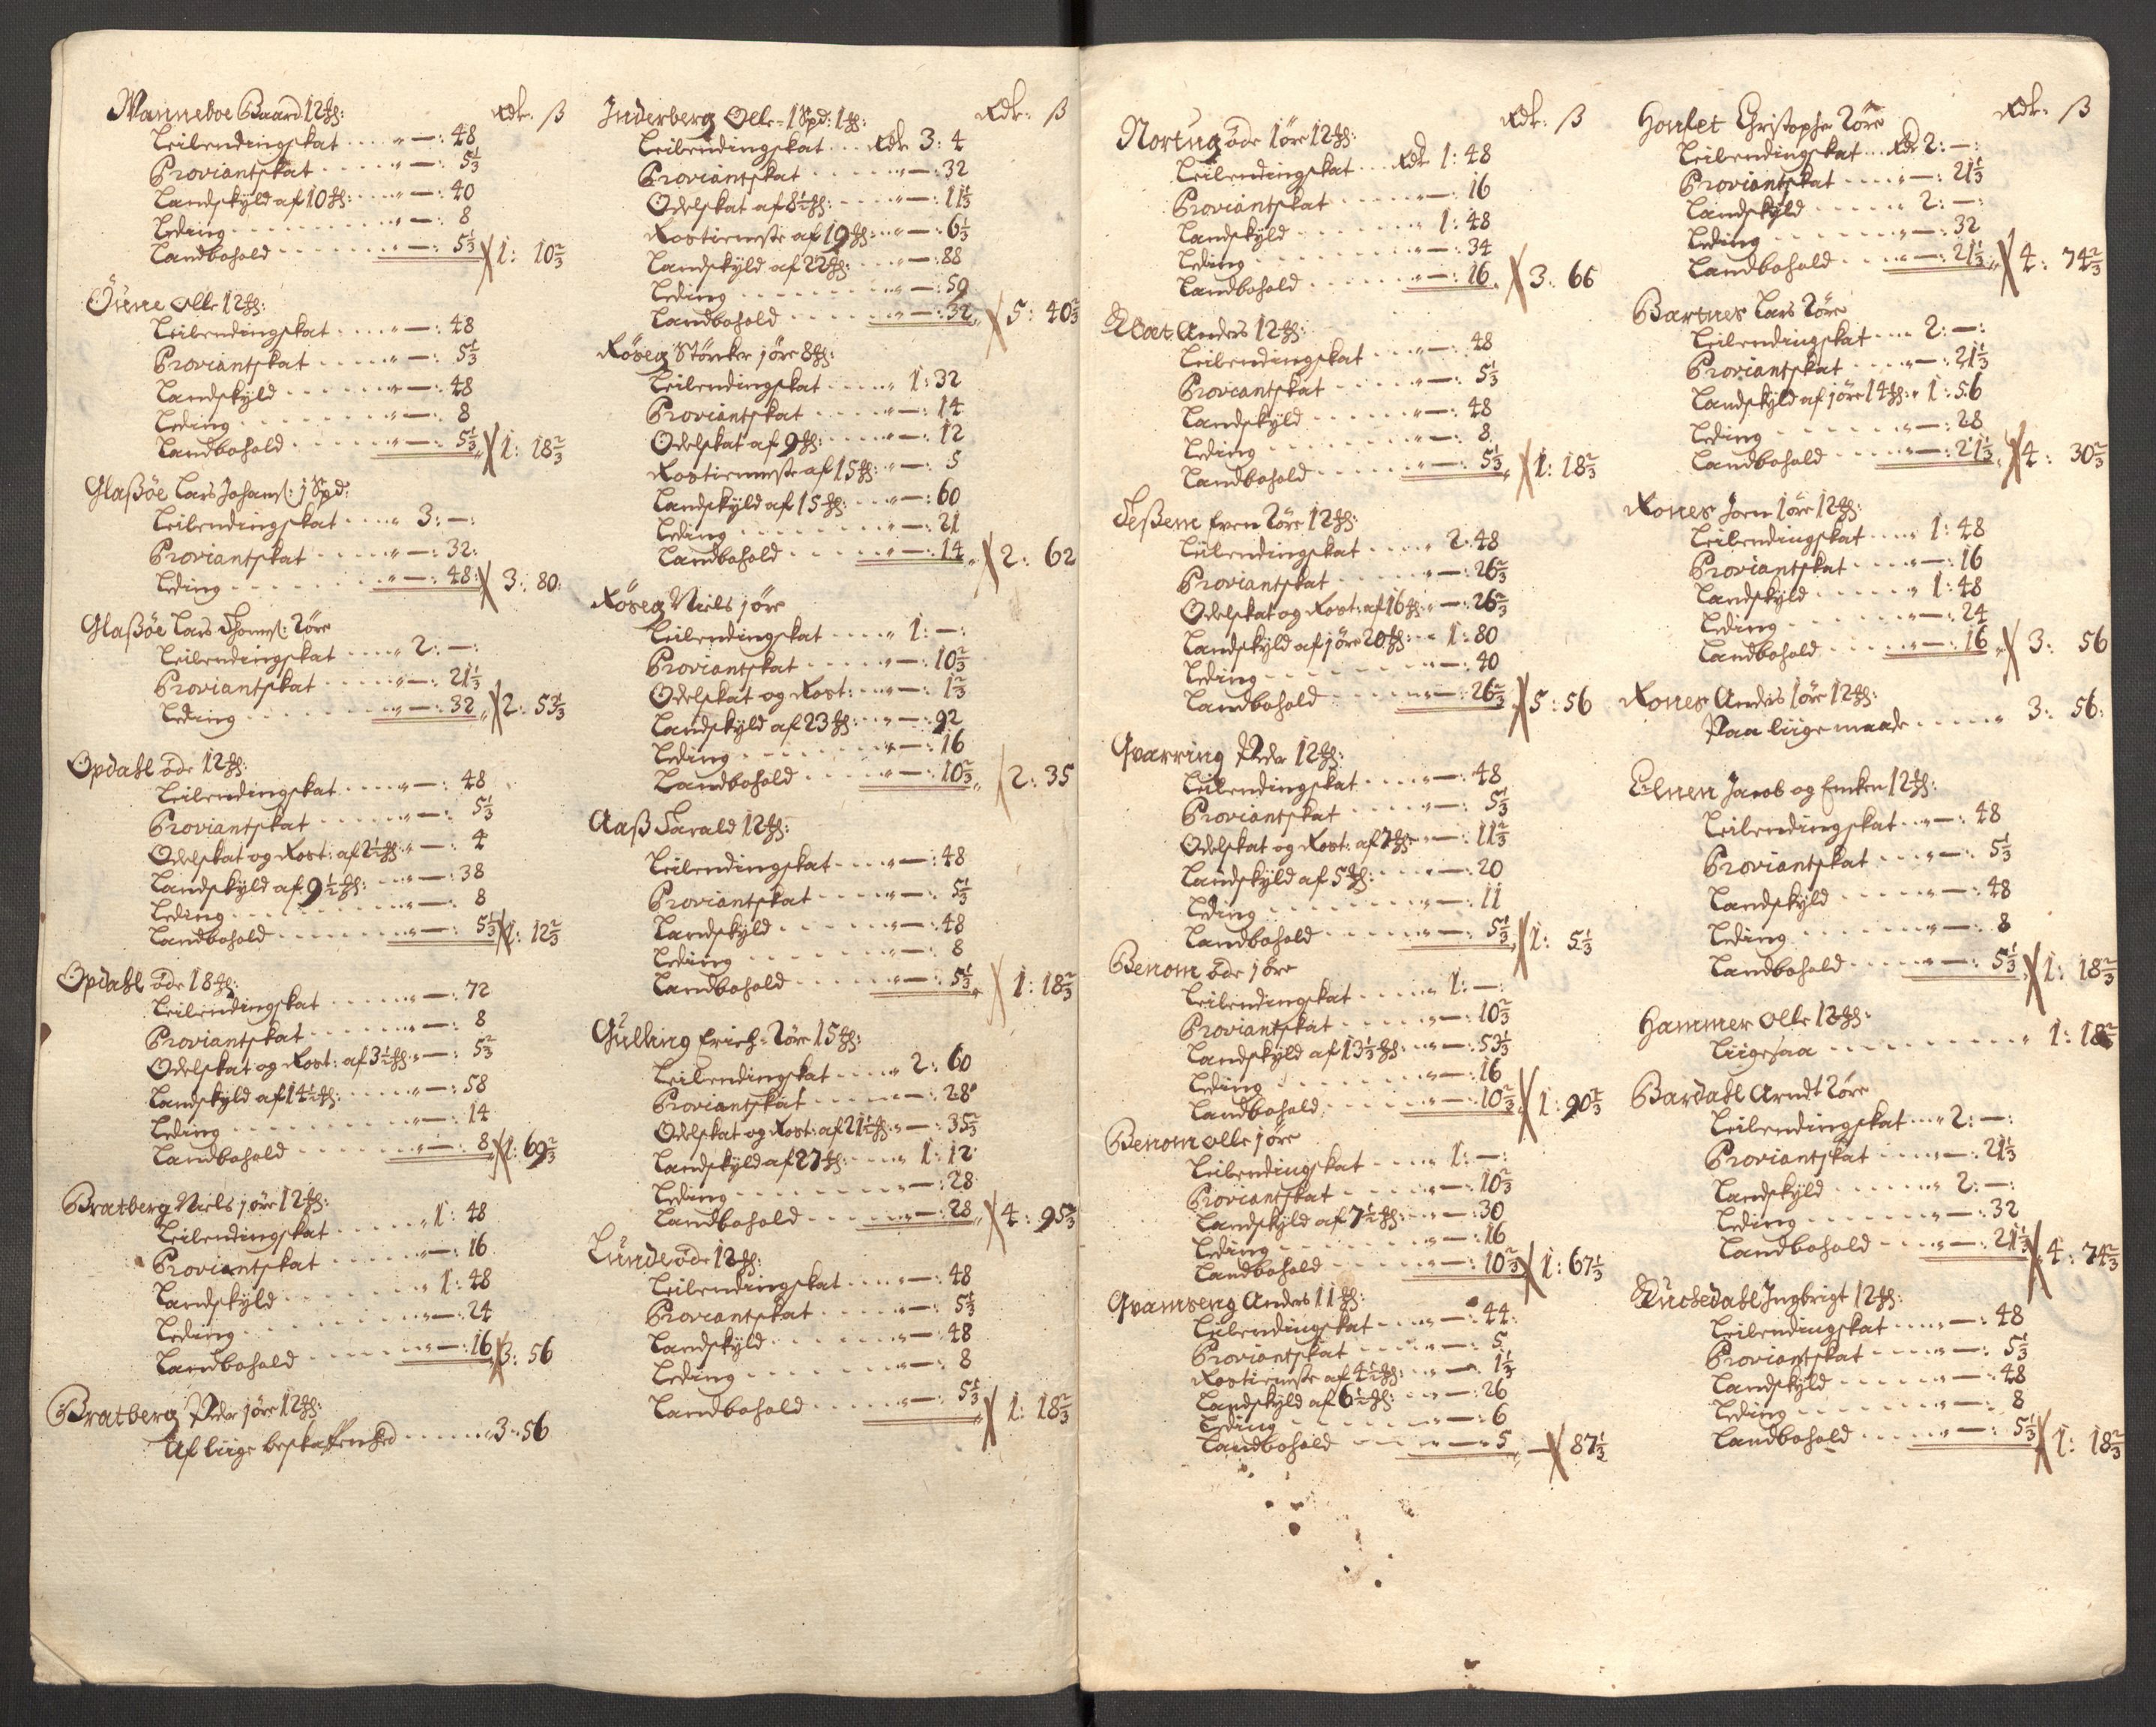 Rdr. ß
Manneboe Baard 12 ℔:
Leilendingskat .... " —: 48
Proviantskat .... " —: 5 1/3
Landskyld af 10 ℔: .... " —: 40
Leding .... " —: 8
Landbohold .... " —: 5 1/3 1: 10 2/3
Öune Olle 12 ℔:
Leilendingskat .... " —: 48
Proviantskat .... " —: 5 1/3
Landskyld .... " —: 48
Leding .... " —: 8
Landbohold .... " —: 5 1/3 1: 18 2/3
Glaßöe Lars Johans: j Spd:
Leilendingskat .... " 3: —:
Proviantskat .... " —: 32:
Leding .... " —: 48: 3: 80:
Glaßöe Lars Thoms: 2 öre
Leilendingskat .... " 2: —:
Proviantskat .... " —: 21 1/3
Leding .... " —: 32 2: 53 1/3
Opdahl öde 12 ℔:
Leilendingskat .... " —: 48
Proviantskat .... " —: 5 1/3
Odelskat og Rost: af 2 1/2 ℔: " —: 4
Landskyld af 9 1/2 ℔: .... " —: 38
Leding .... " —: 8
Landbohold .... " —: 5 1/3 1: 12 2/3
Opdahl öde 18 ℔:
Leilendingskat .... " —: 72
Proviantskat .... " —: 8
Odelskat og Rost: af 3 1/2 ℔: " —: 5 2/3
Landskyld af 14 1/2 ℔: .... " —: 58
Leding .... " —: 14
Landbohold .... " —: 8 1: 69 2/3
Bratberg Niels j öre 12 ℔:
Leilendingskat .... " 1: 48
Proviantskat .... " —: 16
Landskyld .... " 1: 48
Leding .... " —: 24
Landbohold .... " —: 16 3: 56
Bratberg Peder j öre 12 ℔:
Af liige beskaffenhed .... " 3: 56
Rdr. ß
Inderberg Olle - 1 Spd: 1 ℔:
Leilendingskat ... Rdr 3: 4
Proviantskat .... " —: 32
Odelskat af 8 1/2 ℔: .... " —: 11 1/3
Rostieneste af 19 ℔: .. " —: 6 1/3
Landskyld af 22 ℔: .... " —: 88
Leding .... " —: 59
Landbohold .... " —: 32 5: 40 2/3
Röseg Störcker j öre 8 ℔:
Leilendingskat .... " 1: 32
Proviantskat .... " —: 14
Odelskat af 9 ℔: .... " —: 12
Rostieneste af 15 ℔: " —: 5
Landskyld af 15 ℔: .... " —: 60
Leding .... " —: 21
Landbohold .... " —: 14 2: 62
Röseg Niels j öre
Leilendingskat .... " 1: —:
Proviantskat .... " —: 10 2/3
Odelskat og Rost: .... " —: 1 2/3
Landskyld af 23 ℔: .. " —: 92
Leding .... " —: 16
Landbohold .... " —: 10 2/3 2: 35
Aaß Harald 12 ℔:
Leilendingskat .... " —: 48
Proviantskat .... " —: 5 1/3
Landskyld .... " —: 48
Leding .... " —: 8
Landbohold .... " —: 5 1/3 1: 18 2/3
Gulling Erich - 2 öre 15 ℔:
Leilendingskat .... " 2: 60
Proviantskat .... " —: 28
Odelskat og Rost: af 21 1/2 ℔: " —: 35 2/3
Landskyld af 27 ℔: .... " 1: 12
Leding .... " —: 28
Landbohold .... " —: 28 4: 95 2/3
Lunde öde 12 ℔:
Leilendingskat .... " —: 48
Proviantskat .... " —: 5 1/3
Landskyld .... " —: 48
Leding .... " —: 8
Landbohold .... " —: 5 1/3 1: 18 2/3
Rdr: ß
Nortug öde 1 öre 12 ℔:
Leilendingskat ... Rdr 1: 48
Proviantskat .... " —: 16
Landskyld .... " 1: 48
Leding .... " —: 34
Landbohold .... " —: 16 3: 66
Anders 12 ℔:
Leilendingskat .... " —: 48
Proviantskat .... " —: 5 1/3
Landskyld .... " —: 48
Leding .... " —: 8
Landbohold .... " —: 5 1/3 1: 18 2/3
Teßem Even 2 öre 12 ℔:
Leilendingskat .... " 2: 48
Proviantskat .... " —: 26 2/3
Odelskat og Rost: af 16 ℔: " —: 26 2/3
Landskyld af j öre 20 ℔: .. " 1: 80
Leding .... " —: 40
Landbohold .... " —: 26 2/3 5: 56
Qvarring Peder 12 ℔:
Leilendingskat .... " —: 48
Proviantskat .... " —: 5 1/3
Odelskat og Rost: af 7 ℔: " —: 11 2/3
Landskyld af 5 ℔: .... " —: 20
Leding .... " —: 11
Landbohold .... " —: 5 1/3 1: 5 1/3
Benom öde j öre
Leilendingskat .... " 1: —:
Proviantskat .... " —: 10 2/3
Landskyld af 13 1/3 ℔: .. " —: 53 1/3
Leding .... " —: 16
Landbohold .... " —: 10 2/3 1: 90 2/3
Benom Olle j öre
Leilendingskat .... " 1: —:
Proviantskat .... " —: 10 2/3
Landskyld af 7 1/2 ℔: .. " —: 30
Leding .... " —: 16
Landbohold .... " —: 10 2/3 1: 67 1/3
Qvamseng Anders 11 ℔:
Leilendingskat .... " —: 44
Proviantskat .... " —: 5
Rostieneste af 4 1/2 ℔: .. " —: 1 1/3
Landskyld af 6 1/2 ℔: .. " —: 26
Leding .... " —: 6
Landbohold .... " —: 5 — 87 1/3
Rdr: ß
Houlet Christopher 2 öre
Leilendingskat ... Rdr 2: —:
Proviantskat .... " —: 21 1/3
Landskyld .... " 2: —:
Leding .... " —: 32
Landbohold .... " —: 21 1/3 4: 74 2/3
Bartnes Lars 2 öre
Leilendingskat .... " 2: —:
Proviantskat .... " —: 21 1/3
Landskyld af j öre 14 ℔: " 1: 56
Leding .... " —: 28
Landbohold .... " —: 21 1/3 4: 30 2/3
Rones Joen 1 öre 12 ℔:
Leilendingskat .... " 1: 48
Proviantskat .... " —: 16
Landskyld .... " 1: 48
Leding .... " —: 24
Landbohold .... " —: 16 3: 56
Rones Anders 1 öre 12 ℔:
Paa liige maade .... " 3: 56:
Elnen Jacob og 12 ℔:
Leilendingskat .. " —: 48
Proviantskat .... " —: 5 1/3
Landskyld .... " —: 48
Leding .... " —: 8
Landbohold .... " —: 5 1/3 1: 18 2/3
Hammer Olle 12 ℔:
Liigesaa .... " 1: 18 2/3
Bardahl Arndt 2 öre
Leilendingskat .... " 2: —:
Proviantskat .... " —: 21 1/3
Landskyld .... " 2: —:
Leding .... " —: 32
Landbohold .... " —: 21 1/3 4: 74 2/3
Ingbrigt 12 ℔:
Leilendingskat .... " —: 48
Proviantskat .... " —: 5 1/3
Landskyld .... " —: 48
Leding .... " —: 8
Landbohold .... " —: 5 1/3 1: 18 2/3